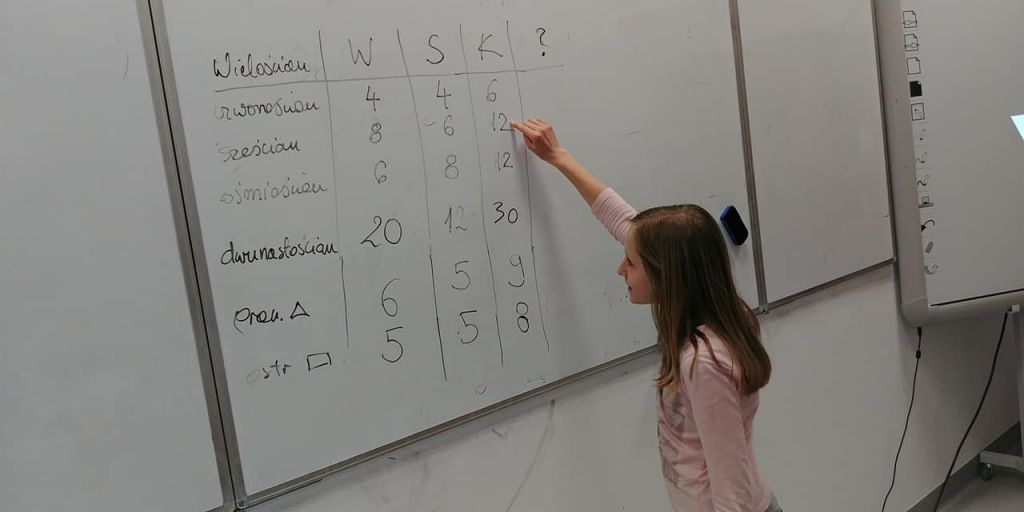 Wielościan W S K ?
czworościan 4 4 6
sześcian 8 6 12
ośmiościan 6 8 12
dwunastościan 20 12 30
gran. △ 6 5 9
ostr ▭ 5 5 8